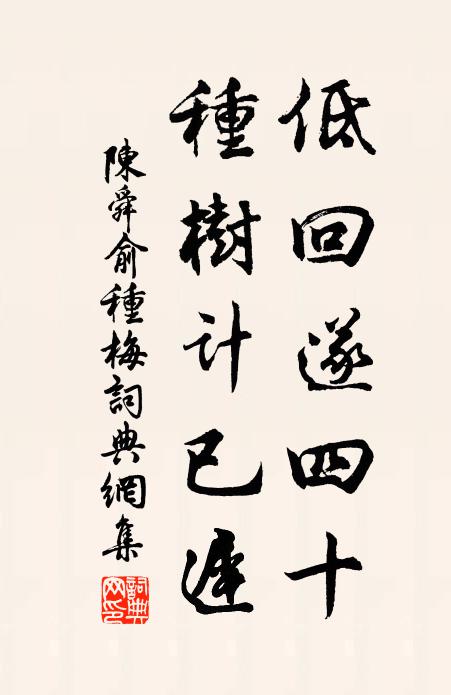 低回遂四十
種樹计已遲
陳舜俞種梅詞典網集
詞典网印